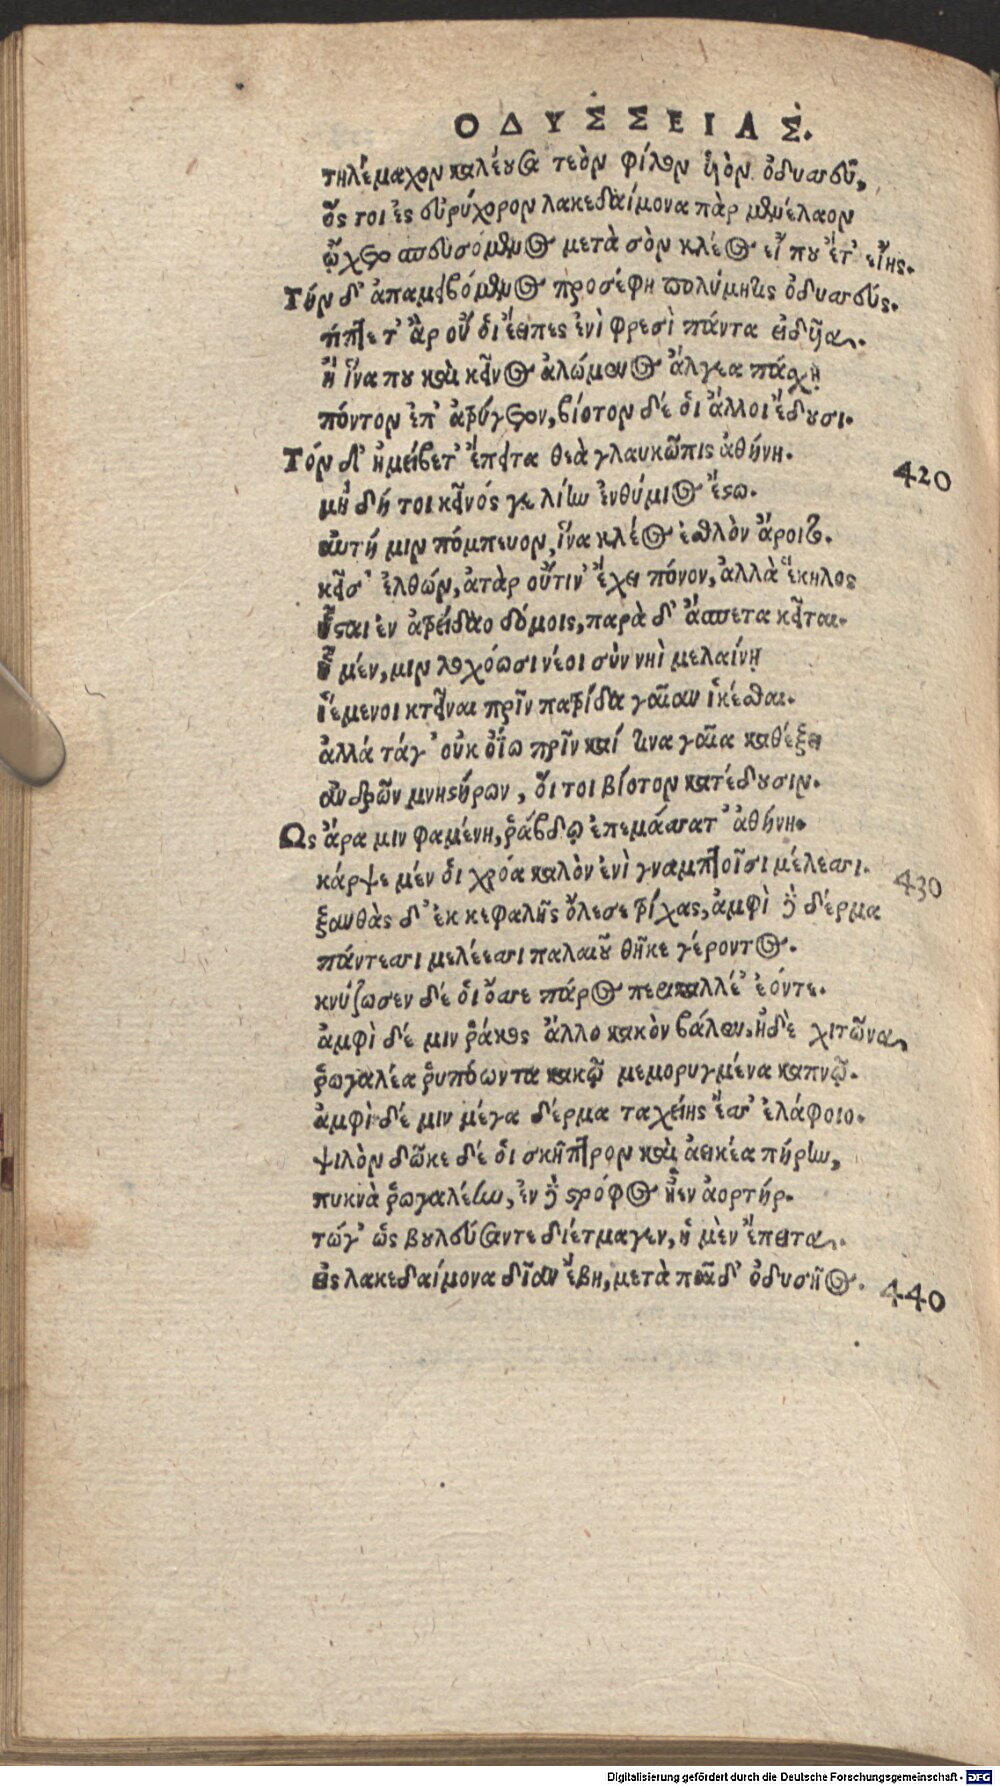 ΟΔΥΣΣΕΙΑΣ.
τηλέμαχον καλέουσα τεὸν φίλον ὑὸν ὀδυσσεῦ,
ὅς τοι ἐς εὐρύχορον λακεδαίμονα πὰρ μενέλαον
ᾤχετο πευσόμενος μετὰ σὸν κλέος εἴ που ἔτ' εἴης.
Τὴν δ' ἀπαμειβόμενος προσέφη πολύμητις ὀδυσσεύς.
τίπτε τ' ἂρ οὔ οἱ ἔειπες ἐνὶ φρεσὶ πάντα εἰδυῖα.
ἢ ἵνα που καὶ κεῖνος ἀλώμενος ἄλγεα πάσχῃ
πόντον ἐπ' ἀτρύγετον, βίοτον δέ οἱ ἄλλοι ἔδουσι.
Τὸν δ' ἠμείβετ' ἔπειτα θεὰ γλαυκῶπις ἀθήνη.
420
μὴ δή τοι κεῖνός γε λίην ἐνθύμιος ἔστω.
αὐτή μιν πόμπευον, ἵνα κλέος ἐσθλὸν ἄροιτο.
κεῖσ' ἐλθών, ἀτὰρ οὔτιν' ἔχει πόνον, ἀλλὰ ἕκηλος
ἧσται ἐν ἀτρείδαο δόμοις, παρὰ δ' ἄσπετα κεῖται.
ἦ μέν, μιν λοχόωσι νέοι σὺν νηὶ μελαίνῃ
ἱέμενοι κτεῖναι πρὶν πατρίδα γαῖαν ἱκέσθαι.
ἀλλά τάγ' οὐκ ὀΐω πρὶν καί τινα γαῖα καθέξει
ἀνδρῶν μνηστήρων, οἵ τοι βίοτον κατέδουσιν.
Ως ἄρα μιν φαμένη, ῥάβδῳ ἐπεμάσσατ' ἀθήνη.
κάρψε μέν οἱ χρόα καλὸν ἐνὶ γναμπτοῖσι μέλεσσι.
430
ξανθὰς δ' ἐκ κεφαλῆς ὄλεσε τρίχας, ἀμφὶ δὲ δέρμα
πάντεσσι μελέεσσι παλαιοῦ θῆκε γέροντος.
κνύζωσεν δέ οἱ ὄσσε πάρος περικαλλέ' ἐόντε.
ἀμφὶ δέ μιν ῥάκος ἄλλο κακὸν βάλεν, ἠδὲ χιτῶνα,
ῥωγαλέα ῥυπόωντα κακῷ μεμορυγμένα καπνῷ.
ἀμφὶ δέ μιν μέγα δέρμα ταχείης ἕσσ' ἐλάφοιο.
ψιλὸν δῶκε δέ οἱ σκῆπτρον καὶ ἀεικέα πήρην,
πυκνὰ ῥωγαλέην, ἐν δὲ στρόφος ἦεν ἀορτήρ.
τώγ' ὣς βουλεύσαντε διέτμαγεν, ἡ μὲν ἔπειτα.
ἐς λακεδαίμονα δῖαν ἔβη, μετὰ παῖδ' ὀδυσῆος.
440
Digitalisierung gefördert durch die Deutsche Forschungsgemeinschaft - DFG